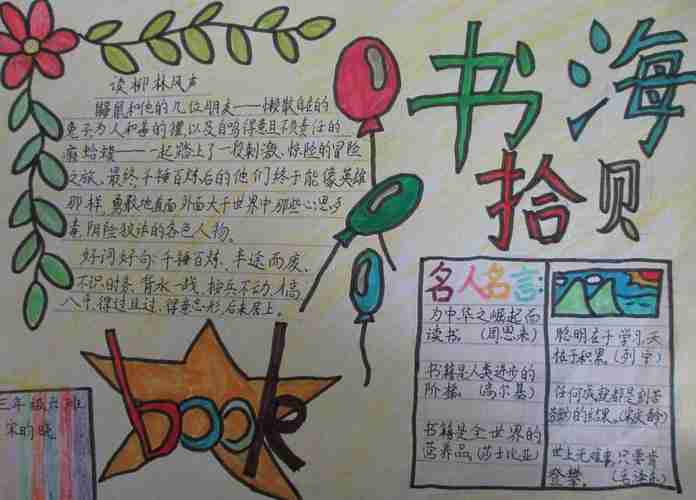 书海
拾贝
读柳林风声
鼹鼠和他的几位朋友——懒散自在的
兔子为人和善的獾,以及自鸣得意且不负责任的
癞蛤蟆——一起踏上了一段刺激、惊险的冒险
之旅。最终,千锤百炼后的他们终于能像英雄
那样,勇敢地直面外面大千世界中那些心思歹
毒,阴险狡诈的各色人物。
好词好句:千锤百炼、半途而废、
不识时务、背水一战、
八斗、得过且过、得意忘形、后来居上。
book
三年级六班
名人名言:
为中华之崛起而
读书。(周恩来)
书籍是人类进步的
阶梯。(高尔基)
书籍是全世界的
营养品。(莎士比亚)
聪明在于学习,天
才在于积累。(列宁)
任何成就都是刻苦
劳动的结果。(宋庆龄)
世上无难事,只要肯
登攀。(毛泽东)